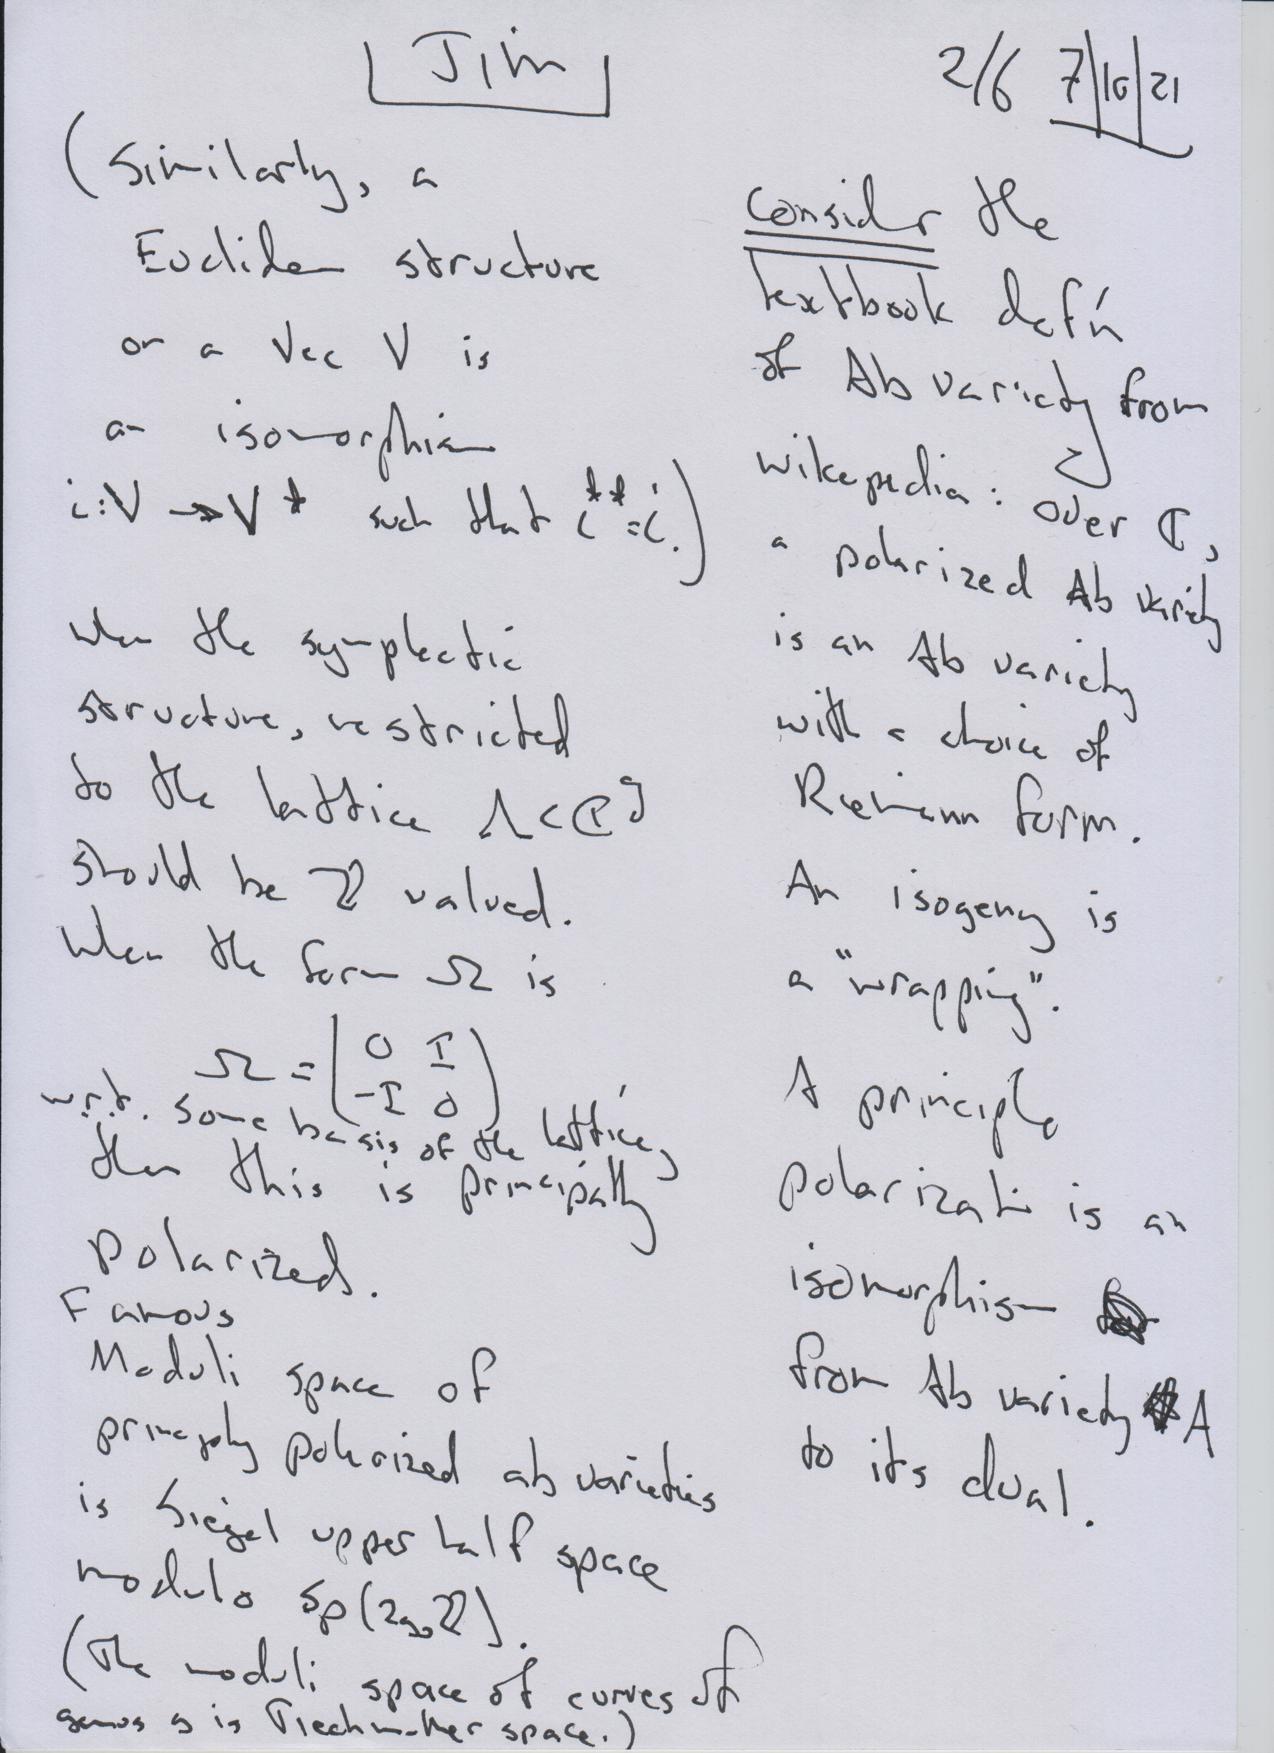 Jim
2/6 7|10|21
(Similarly, a
Euclidean structure
on a Vec V is
an isomorphism
i:V → V* such that i**=i.)
when the symplectic
structure, restricted
to the lattice Λ<ℂ^g
should be ℤ valued.
When the form Ω is
Ω = (0 I
-I 0)
w.r.t. some basis of the lattice,
then this is principally
polarized.
Famous
Moduli space of
principly polarized ab varieties
is Siegel upper half space
modulo Sp(2g,ℤ).
(The moduli space of curves of
genus g is Tiechmuller space.)
Consider the
textbook def'n
of Ab variety from
wikepedia: over ℂ,
a polarized Ab variety
is an Ab variety
with a choice of
Riemann form.
An isogeny is
a "wrapping".
A principle
polarizati is an
isomorphism
from Ab variety A
to its dual.